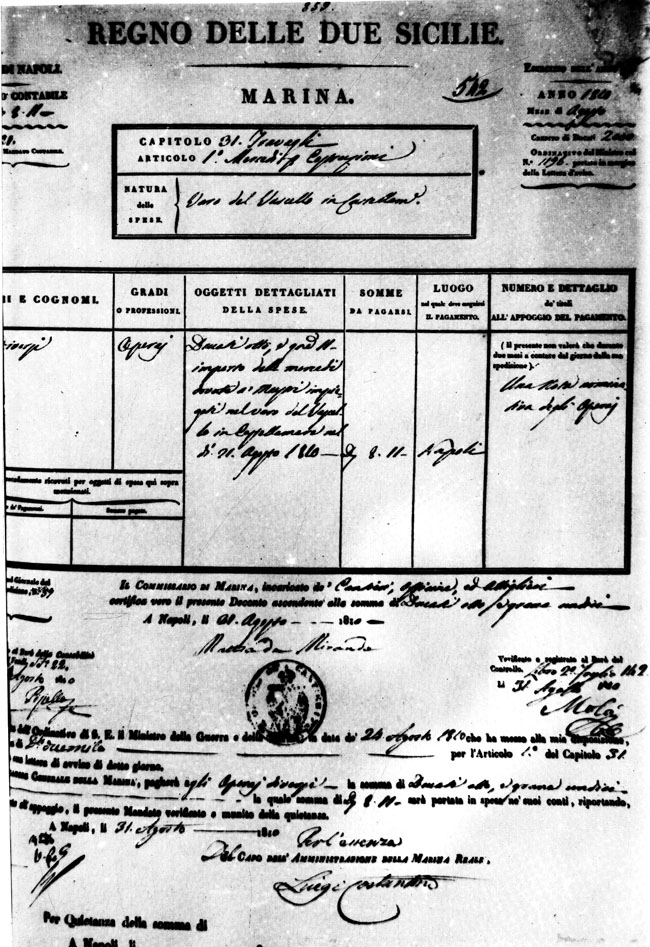 859.
REGNO DELLE DUE SICILIE.
DI NAPOLI.
MARINA.
542
D' CONTABILE
8. 11
ANNO 1810
MESE di Agosto
CARICO di Ducati 2000
ORDINATIVO del Ministro col
N.° 1196 portato in margine
della Lettera d'avviso.
CAPITOLO 31. Travagli
ARTICOLO 1.°
NATURA
delle
SPESE.
Varo del Vascello in Castellam.e
I E COGNOMI.
GRADI
O PROFESSIONI.
OGGETTI DETTAGLIATI
DELLA SPESE.
SOMME
DA PAGARSI.
LUOGO
nel quale deve seguirsi
IL PAGAMENTO.
NUMERO E DETTAGLIO
de' titoli
ALL' APPOGGIO DEL PAGAMENTO.
Diversi
Operaj
Ducati otto, e gra 11
importo delle mercedi
dovute a' impie
gati nel varo del Vascel
lo in Castellamare nel
dì 21. Agosto 1810
D. 8. 11
Napoli
( Il presente non valerà che durante
due mesi a contare dal giorno della sua
spedizione ).
Una nota nomina
tiva degli Operaj
ricevuti per oggetti di spesa qui sopra
menzionati.
de' Pagamenti.
Somme pagate.
IL COMMISSARIO DI MARINA, incaricato de' Cantieri, Officine, ed Attiglieri
certifica vero il presente Documento ascendente alla somma di Ducati otto, e grana undici
A Napoli, li 31. Agosto 1810
Miranda
Verificato e registrato al Burò del
Controllo. Libro 2.° Foglio 142
Li 31 Agosto 1810
dell'Ordinativo di S. E. il Ministro della Guerra e della in data de' 24 Agosto 1810 che ha messo alla mia disposizione,
di D.ti duemila per l'Articolo 1.° del Capitolo 31.
sua lettera di avviso di detto giorno.
GENERALE DELLA MARINA, pagherà agli Operaj diversi la somma di Ducati otto, e grana undici
la quale somma di D. 8. 11 sarà portata in spesa ne' suoi conti, riportando,
di appoggio, il presente Mandato verificato e munito della quietanza.
A Napoli, li 31. Agosto 1810
Per l'assenza
DEL CAPO DELL' AMMINISTRAZIONE DELLA MARINA REALE.
Luigi Costantini
Per Quietanza della somma di
A Napoli li